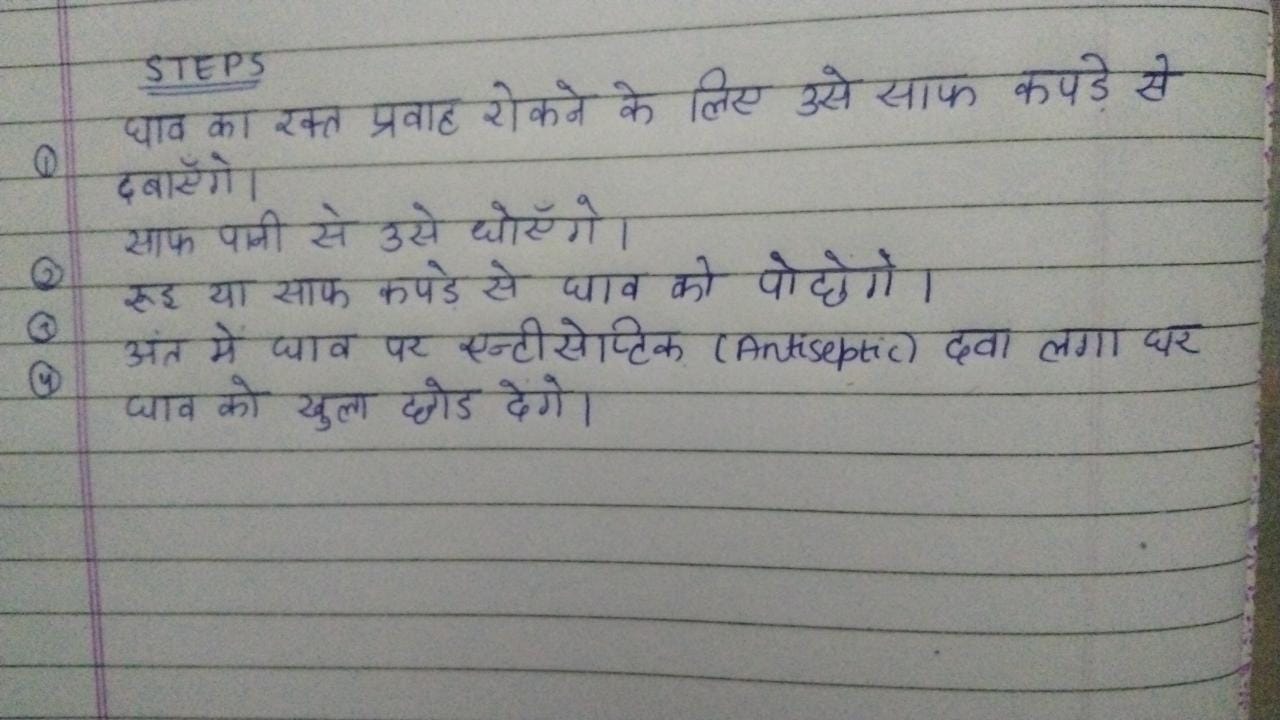 STEPS
घाव का रक्त प्रवाह रोकने के लिए उसे साफ कपड़े से
① दबाएँगे।
साफ पानी से उसे धोएँगे।
② रूइ या साफ कपड़े से घाव को पोछेंगे।
③ अंत में घाव पर एन्टीसेप्टिक (Antiseptic) दवा लगा घर
④ घाव को खुला छोड देंगे।